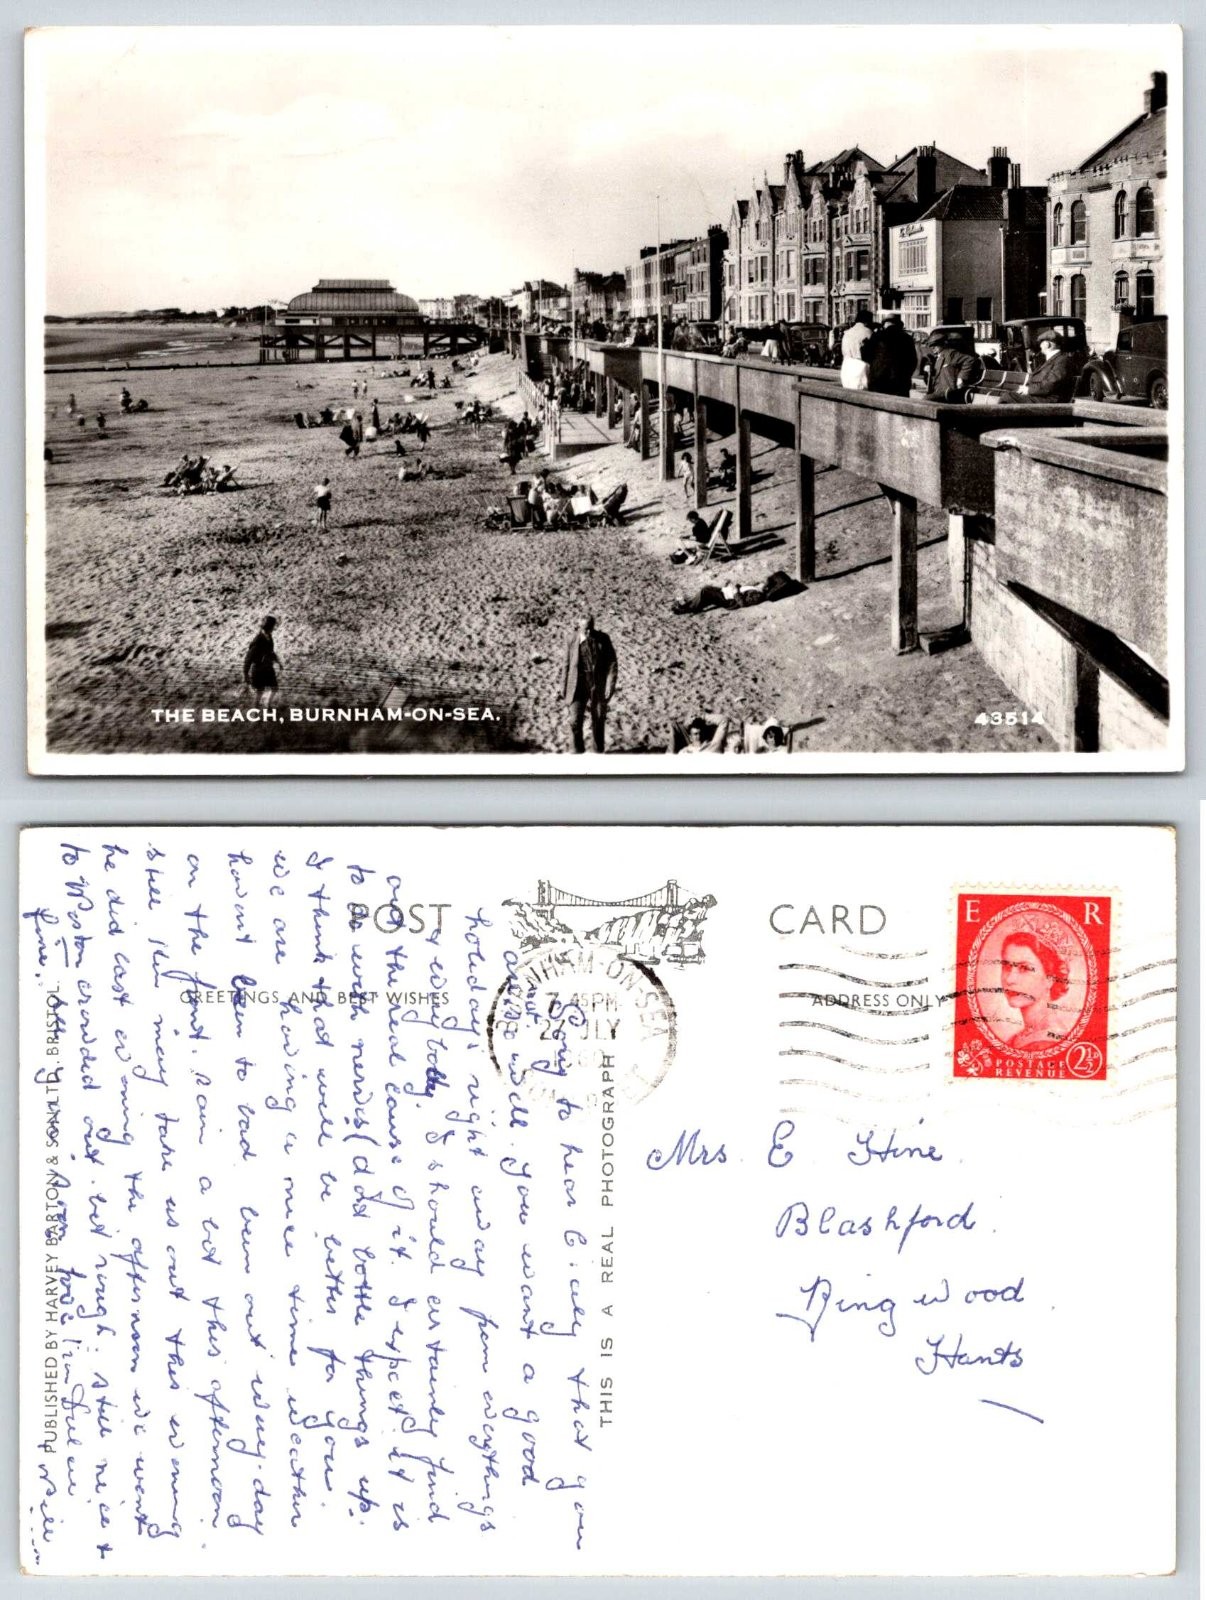 THE BEACH, BURNHAM-ON-SEA.
43514
POST CARD
GREETINGS AND BEST WISHES
ADDRESS ONLY
BURNHAM-ON-SEA
7 45PM
JLY
E R
POSTAGE
REVENUE
2½D
Mrs E Hine
Blashford.
Ringwood
Hants
THIS IS A REAL PHOTOGRAPH
PUBLISHED BY HARVEY BARTON & SON LTD. BRISTOL
Sorry to hear Cicely that you
are not so well. You want a good
holiday right away from everythings
& everybody I should certainly find
out the real cause of it. I expect it is
to do with nerves (& do bottle things up.
I think that will be better for you.
We are having a nice time weather
havent been to bad been out every-day
on the front. Rain a bit this afternoon.
still Jim may take us out this evening
he did last evening the afternoon we went
to Weston crowded out. bit rough: still nice &
fine.
love from